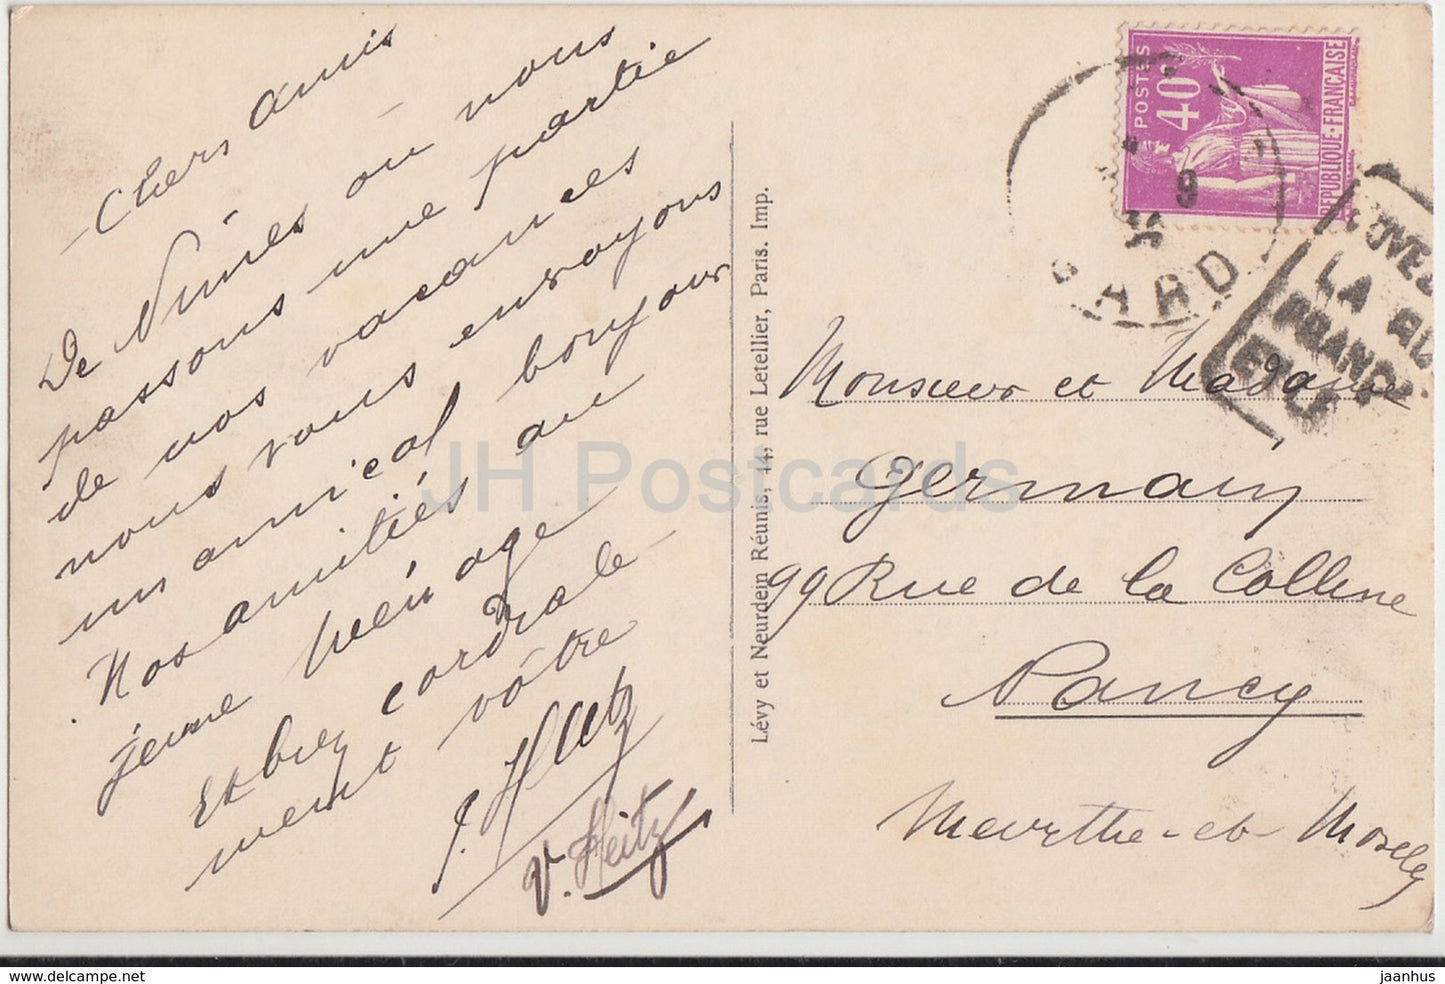 Chers amis
De Nîmes ou nous
passons une partie
de nos vacances
nous vous envoyons
un amical bonjour
Nos amitiés au
jeune ménage
Et bien cordiale-
ment vôtre
J. Heitz
V. Heitz
Lévy et Neurdein Réunis, 44, rue Letellier, Paris. Imp.
POSTES
40c
RÉPUBLIQUE-FRANÇAISE
9
35
GARD
LA
FRANC
Monsieur et Madame
Germain
99 Rue de la Colline
Nancy
Meurthe-et-Moselle
JH Postcards
www.jh-postcards.com
jaanhus